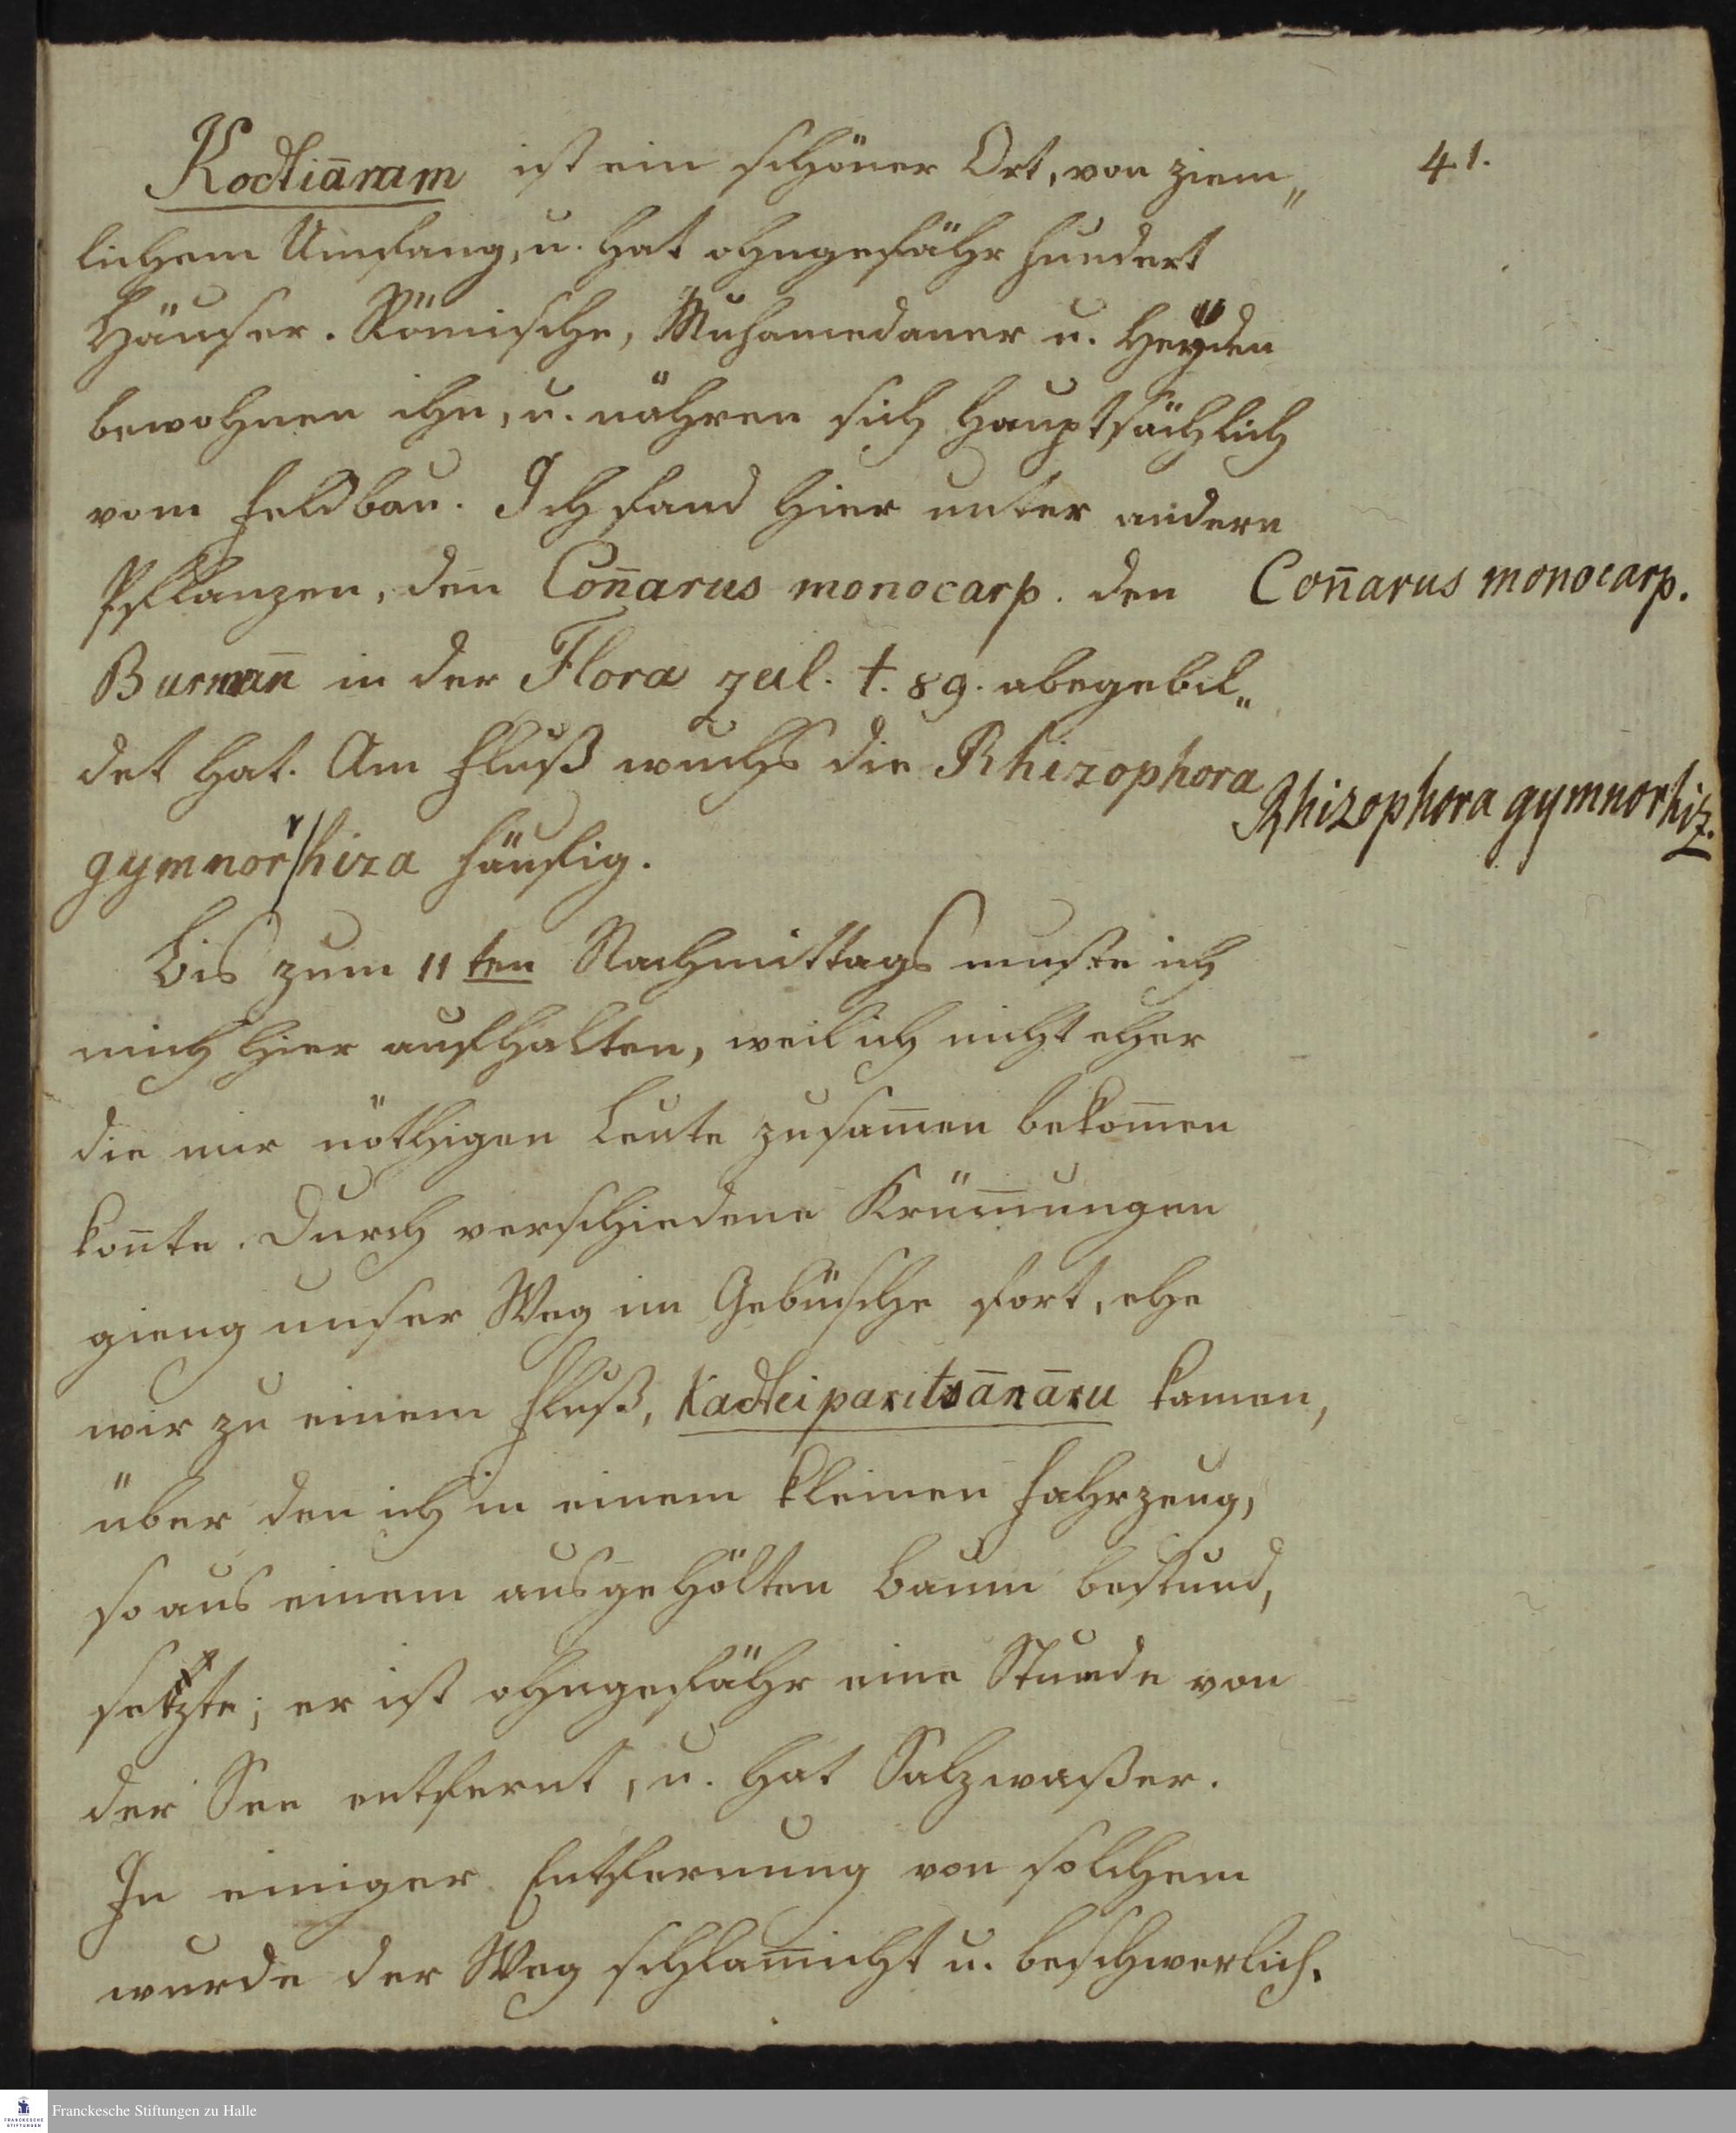 41.
Kodtiāram ist ein schöner Ort, von ziem„
lichem Umfang, u. hat ohngefähr hundert
Häuser. Römische, Muhamedaner u. Heyden
bewohnen ihn, u. nähren sich hauptsächlich
vom Feldbau. Ich fand hier unter andern
Pflanzen, den Con̄arus monocarp. den
Con̄arus monocarp.
Burman̄ in der Flora zeil. t. 89. abegebil„
det hat. Am Fluß wuchs die Rhizophora
Rhizophora gymnorhiz.
gymnorrhiza häufig.
Bis zum 11ten Nachmittags muste ich
mich hier aufhalten, weil ich nicht eher
die mir nöthigen Leute zusam̄en bekom̄en
kon̄te. Durch verschiedene Krüm̄ungen
gieng unser Weg im Gebüsche fort, ehe
wir zu einem Fluß, Kadteiparitsānāru kamen,
über den ich in einem kleinen Fahrzeug,
so aus einem ausgehölten Baum bestund,
setzte; er ist ohngefähr eine Stunde von
der See entfernt, u. hat Salzwaßer.
In einiger Entfernung von solchem
wurde der Weg schlam̄icht u. beschwerlich.
Franckesche Stiftungen zu Halle
FRANCKESCHE
STIFTUNGEN